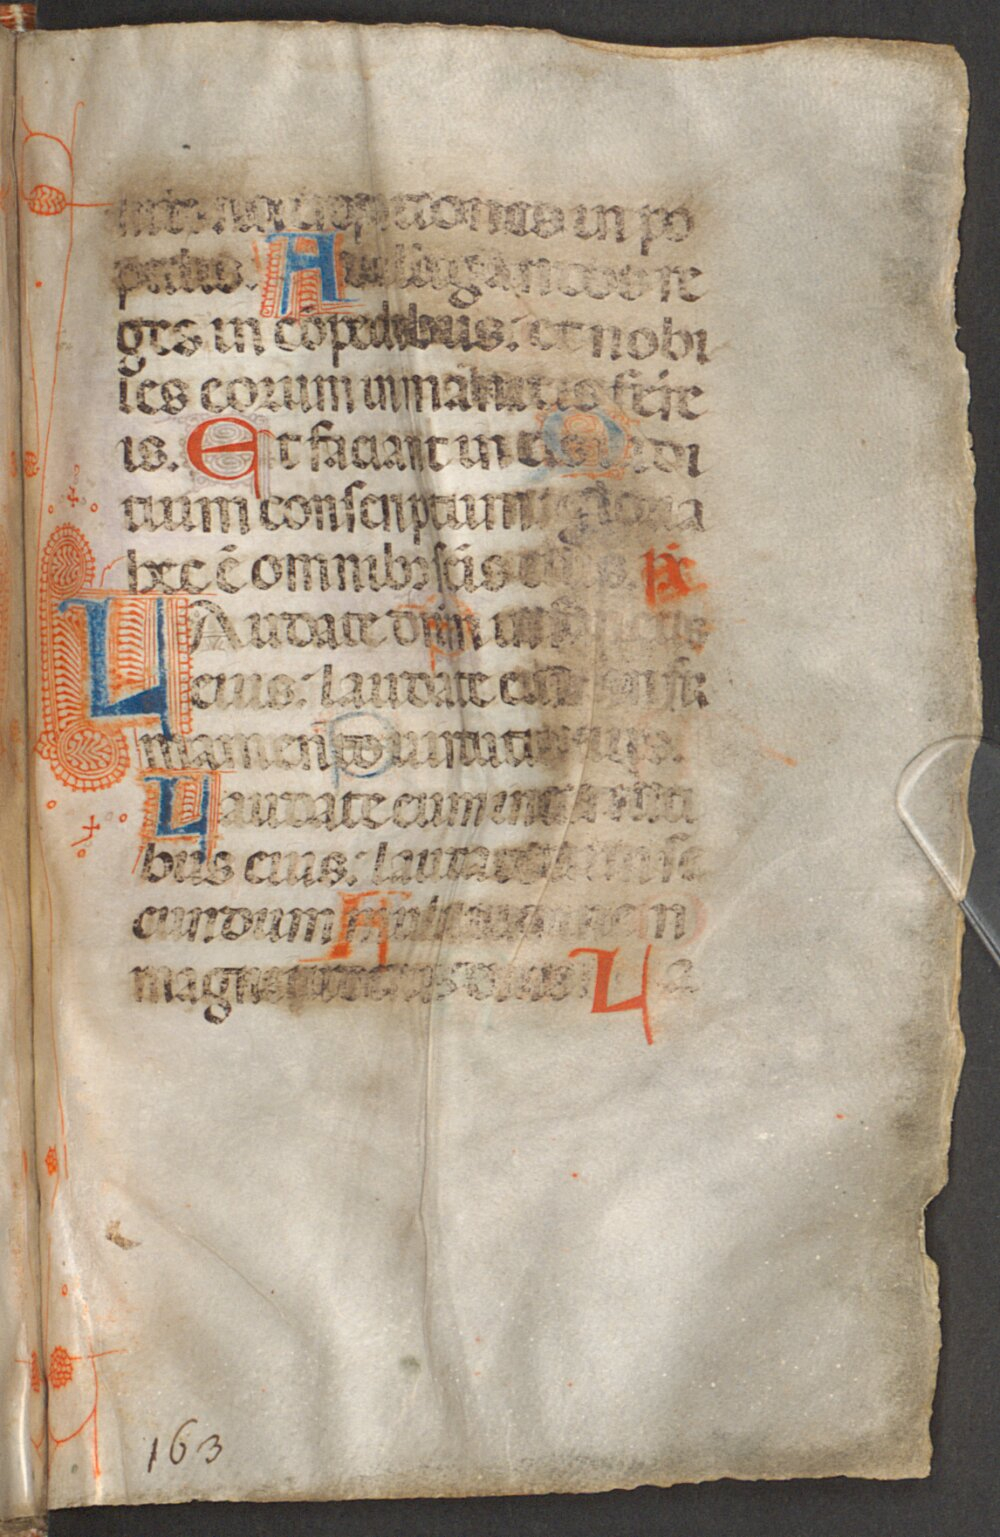 in po
pulis. A
ges in cōpedibus: et nobi
les eorum in manicis ferre
is. Et faciant in eis iudi
tium conscriptum gloria
hec ē omnibꝰ sctīs eius. ps̄
LAudate dn̄m in sctīs
eius: laudate eum in fir
mamento uirtutis eius.
Laudate eum in uirtuti
bus eius: laudate eum se
cundum multitudinem
magnitudinis eius La
163